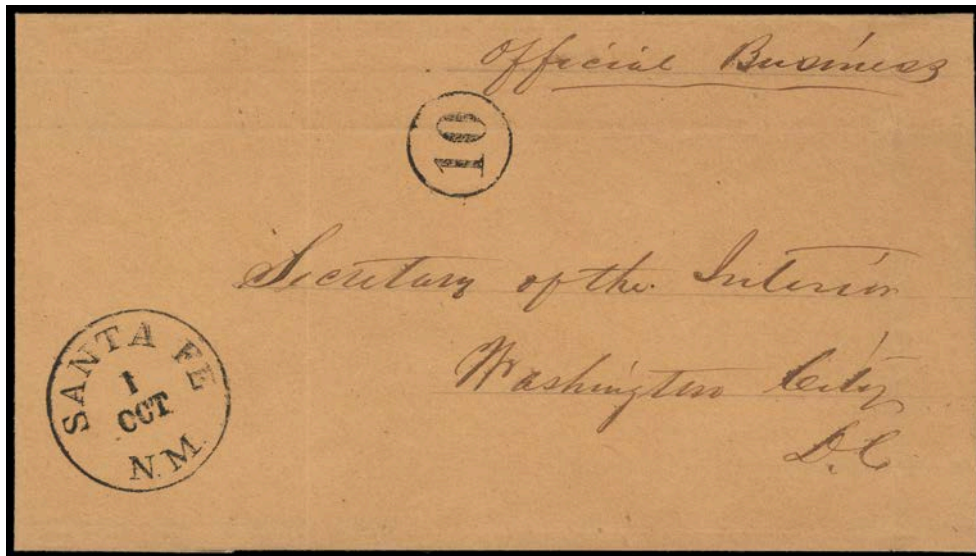 Official Business
10
Secretary of the Interior
Washington City
D.C
SANTA FE
1
OCT
N.M.